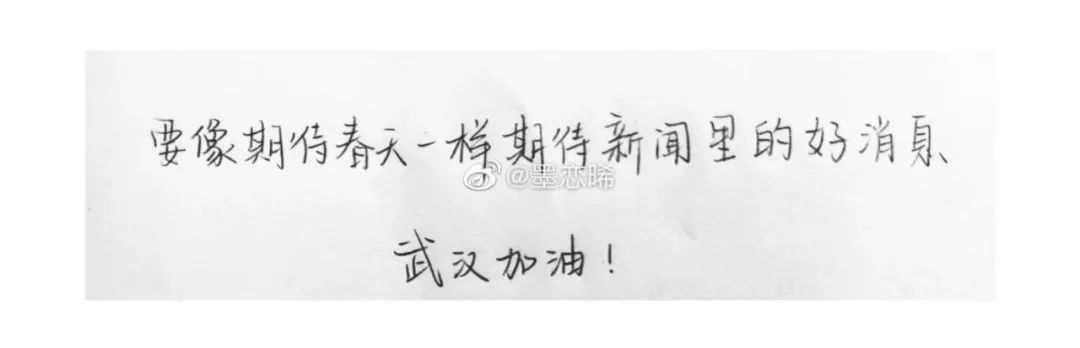 要像期待春天一样期待新闻里的好消息
@墨恋晞
武汉加油！